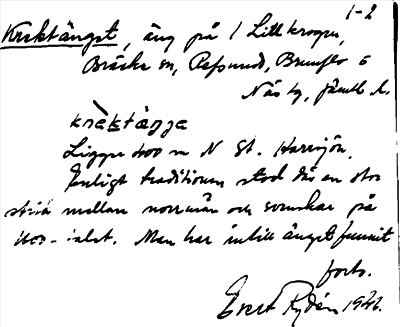 1-2
Krektänget, äng på 1 Lillkrogen,
Bräcke sn, Refsund, Brunflo o
Näs tg, Jämtl. l.
krèktäŋŋa
Ligger 400 m N St. Harrsjön.
Enligt traditionen stod där en stor
strid mellan norrmän och svenskar på
1600-talet. Man har intill änget funnit
forts.
Evert Rydén 1946.